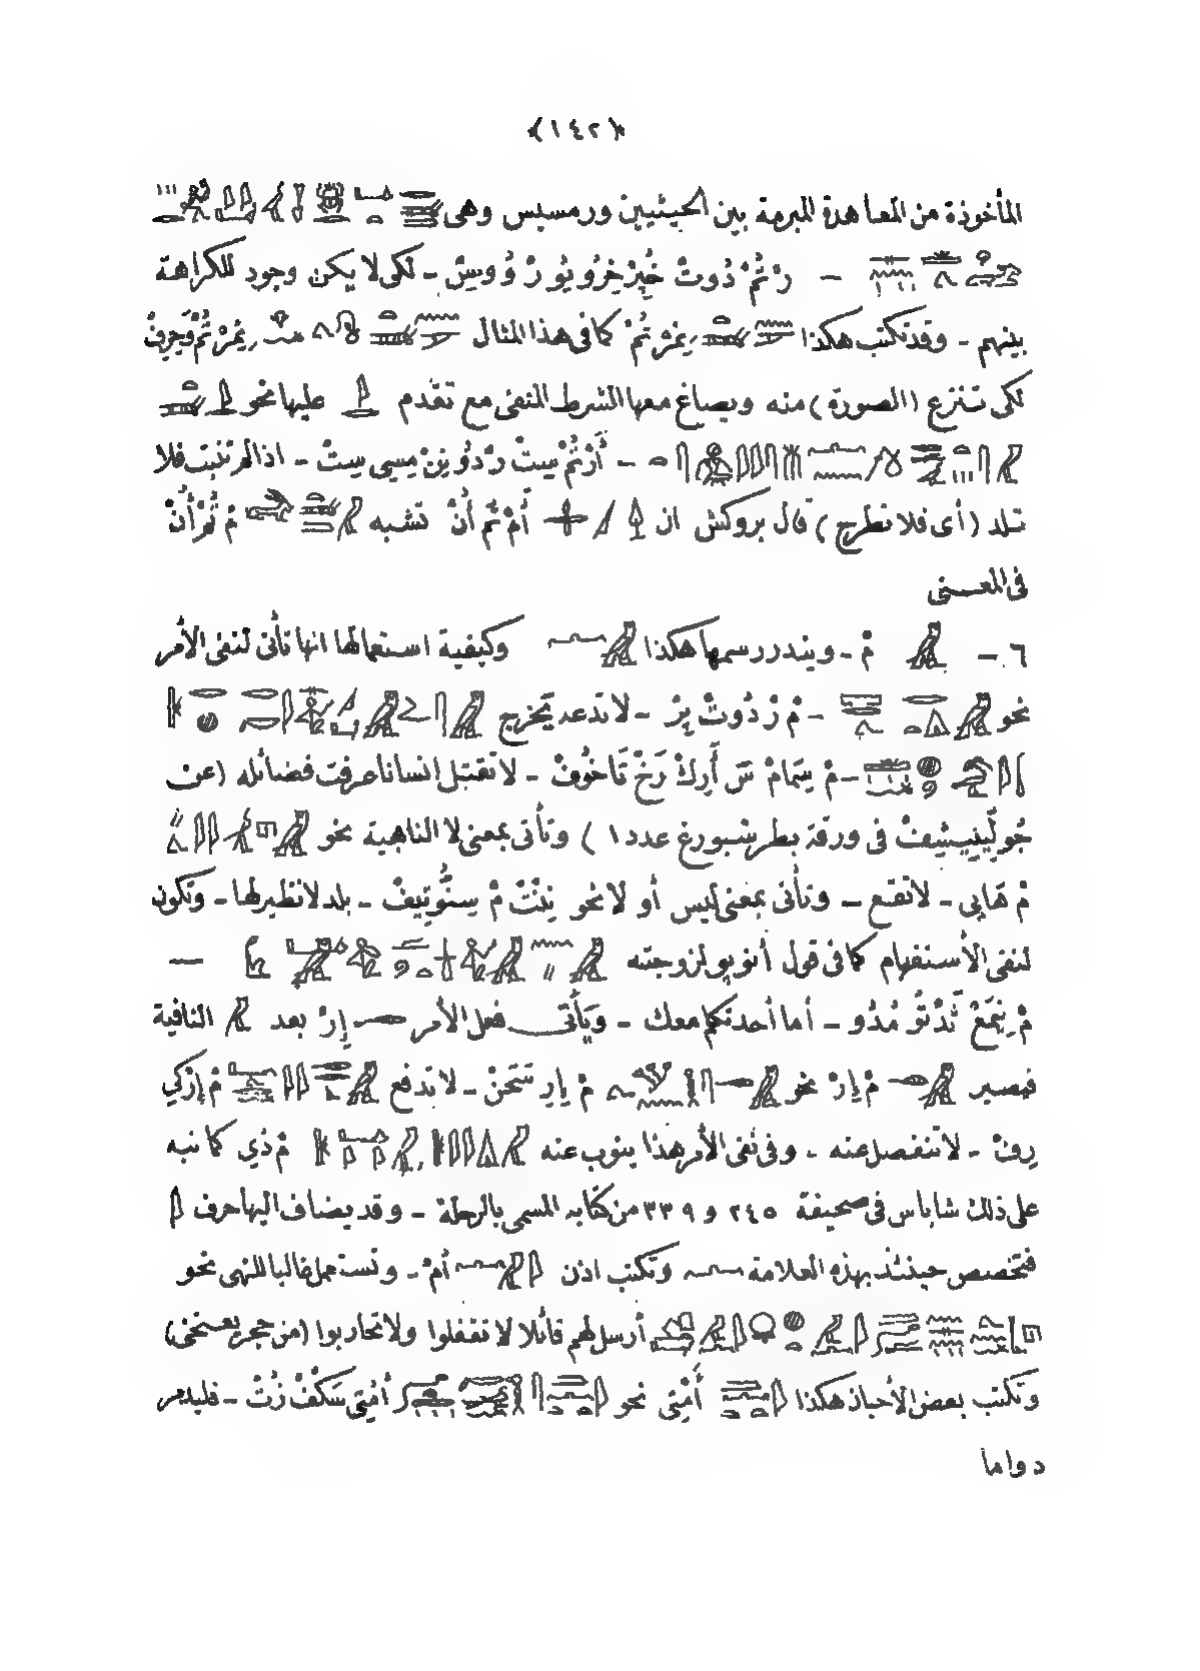 ﴿١٤٢﴾
المأخوذة من المعاهدة المبرمة بين الحيثيين ورمسيس وهى
رْتُمْ دُوتْ خُپِرْ خِرُويُو رْ وُوسِنْ - لكى لا يكن وجود للكراهة
بينهم - وقد تكتب هكذا رِيمْرْتُمْ كما فى هذا المثال
لكى تنتزع (الصورة) منه ويصاغ معها الشرط المنفى مع تقدم عليها نحو
- أَرْتُمْ سِتْ رْدُونِنْ مِسِى سِتْ - اذا لم تثبت فلا
تلد (أى فلا تطرح) قال بروكش ان أَمْ تُمْ أَنْ تشبه مْ تُمْ أَنْ
فى المعنى
٦ - مْ - ويندر رسمها هكذا وكيفية استعمالها انها تأتى لنفى الأمر
نحو - مْ رْدُوتْ پِرْ - لا تدعه يخرج
- مْ سِمَامْ سَ أَرِكْ رَخْ نَاخُوفْ - لا تقتل انسانا عرفت فضائله (عن
جُولِّينِيشِفْ فى ورقة بطرسبورغ عدد ١) وتأتى بمعنى لا الناهية نحو
مْ هَابِى - لا تقع - وتأتى بمعنى ليس أو لا نحو نِتْتْ مْ سِنُّوتِيفْ - بلد لا نظير لها - وتكون
لنفى الأستفهام كما فى قول أنوپو لزوجته -
مْ نِمَعْ ثَدْتُو مُدُو - أما أحد تكلم معك - ويأتى فعل الأمر إِرْ بعد النافية
فيصير مْ إِرْ نحو مْ إِرِ سَحَنْ - لا تدفع مْ إِرْكِى
رِفْ - لا تنفصل عنه - وفى نفى الأمر هذا ينوب عنه مْ دِي كما نبه
على ذلك شاباس فى صحيفة ٢٤٥ و ٣٣٩ من كتابه المسمى بالرحلة - وقد يضاف اليها حرف
فتخصص حينئذ بهذه العلامة وتكتب اذن أمْ - وتستعمل غالبا للنهى نحو
أرسل لهم قائلا لا تغفلوا ولا تحاربوا (من حجر بعنخى)
وتكتب بعض الأحيان هكذا أُمْتِى نحو أُمْتِى سَكُفْ رُتْ - فليدمر
دواما